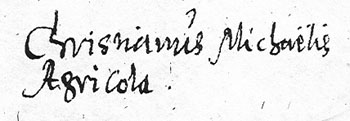 Christianus Michaëlis
Agricola.